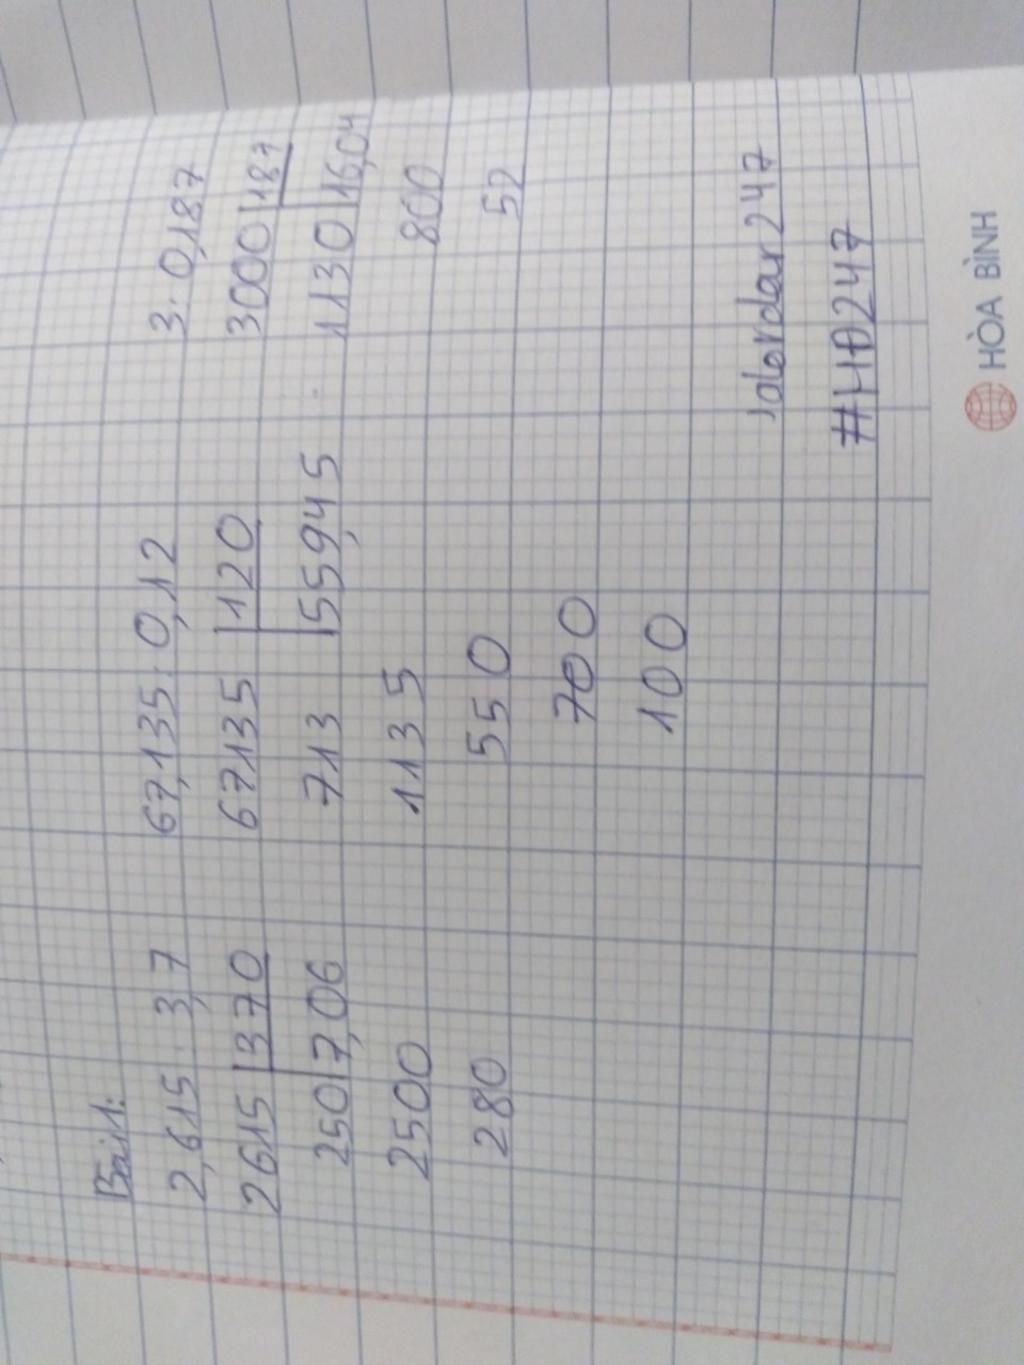 Bài 1:
2,615 : 3,7
2615 370
250 7,06
2500
280
67,135 : 0,12
67135 120
713 559,45
1135
550
700
100
3 : 0,187
3000 187
1130 16,04
800
52
#HD247
HÒA BÌNH